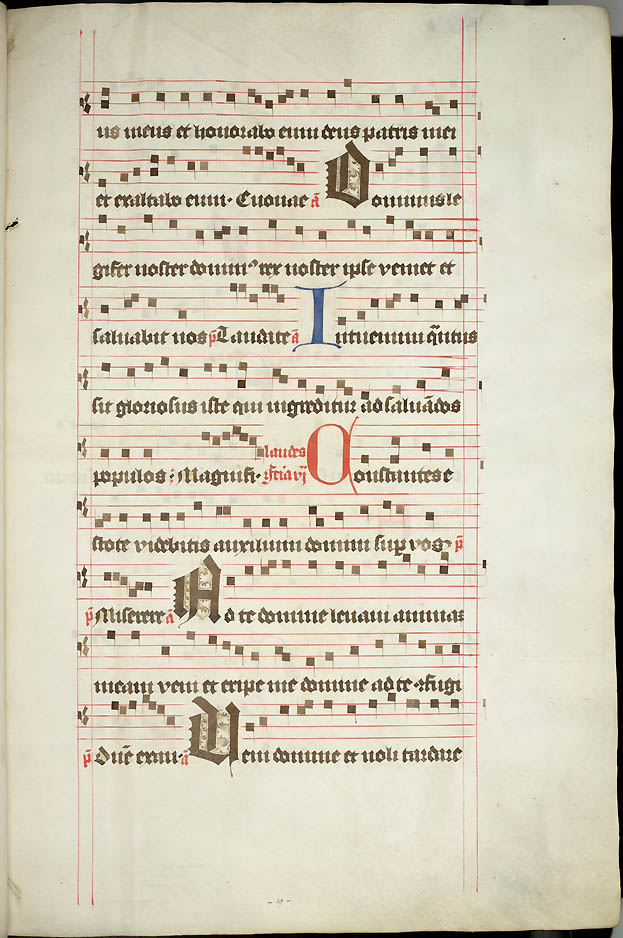 us meus et honorabo eum deus patris mei
et exaltabo eum· Euouae a᷃ Dominus le
gifer noster domin᷒ rex noster ipse veniet et
salvabit nos p̄ Laudate a᷃ Intuemini q̄ntus
sit gloriosus iste qui ingreditur ad saluādos
populos; Magnifi· laudes
feria vj Constantes e
stote videbitis auxilium domini sup vos p̄
p̄ Miserere a᷃ Ad te domine levavi animaz
meam veni et eripe me domine ad te ꝯfugi
p̄ Dn̄e exau· a᷃ Veni domine et noli tardare